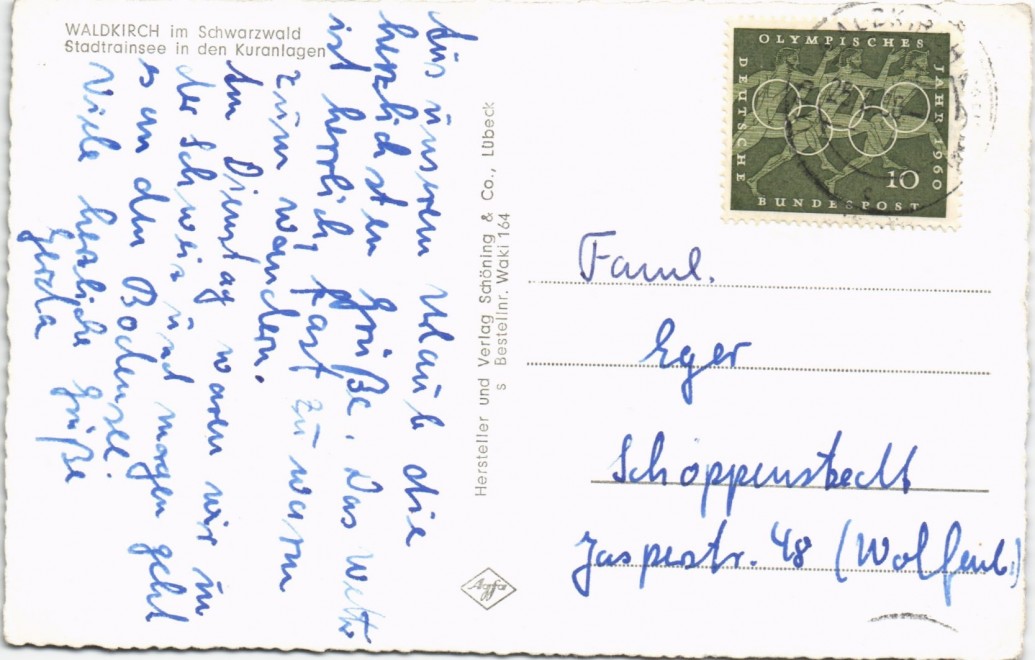 WALDKIRCH im Schwarzwald
Stadtrainsee in den Kuranlagen
Aus unserem Urlaub die
herzlichsten Grüße. Das Wetter
ist herrlich, fast zu warm
zum wandern.
Am Dienstag waren wir in
der Schweiz und morgen geht
es an den Bodensee.
Viele herzliche Grüße
Gerda
Hersteller und Verlag Schöning & Co., Lübeck
s Bestellnr. Waki 164
Agfa
OLYMPISCHES
JAHR 1960
DEUTSCHE
BUNDESPOST
10
WALDKIRCH
Faml.
Eger
Schöppenstedt
Jasperstr. 48 (Wolfenb.)